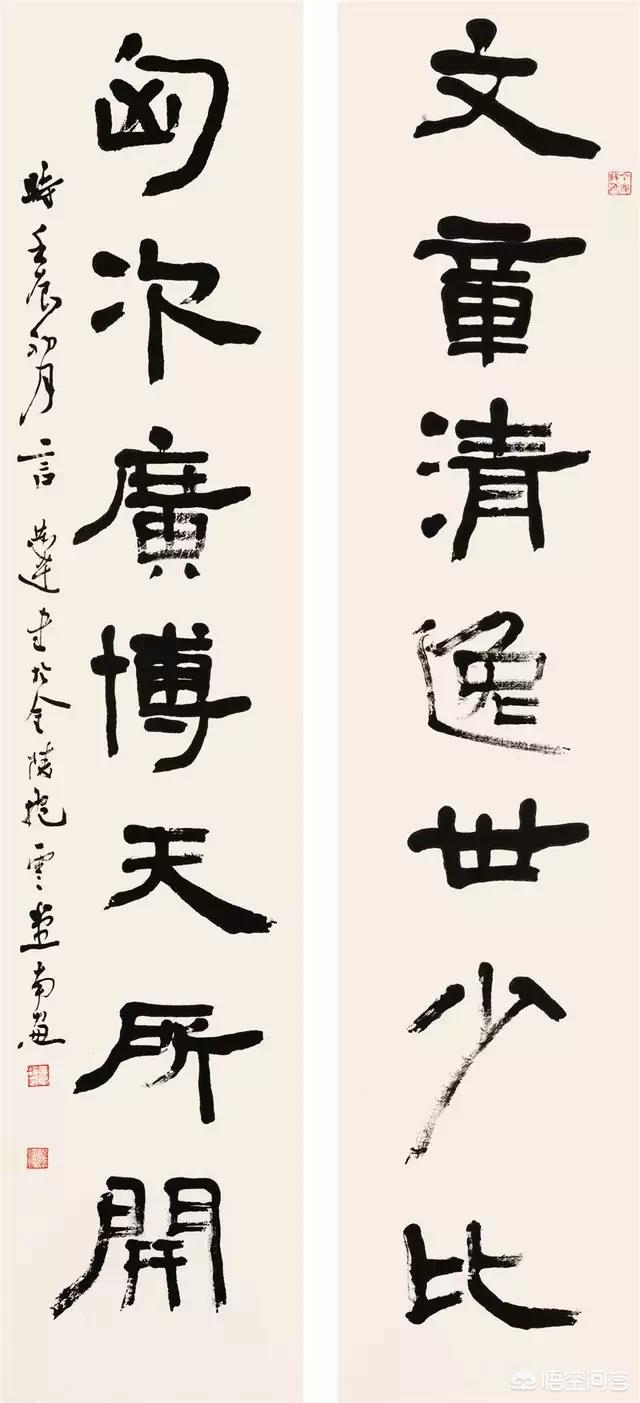 文章清逸世少比
匈次廣博天所開
時壬辰初月言恭達書於金陵抱雲堂南窗
悟空问答